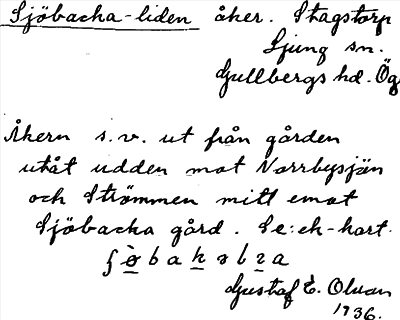 Sjöbacka-liden åker. Stagstorp
Ljung sn.
Gullbergs hd. Ög.
Åkern s.v. ut från gården
utåt udden mot Norrbysjön
och Strömmen mitt emot
Sjöbacka gård. Se: ek-kart.
Gustaf E. Olson
1936.